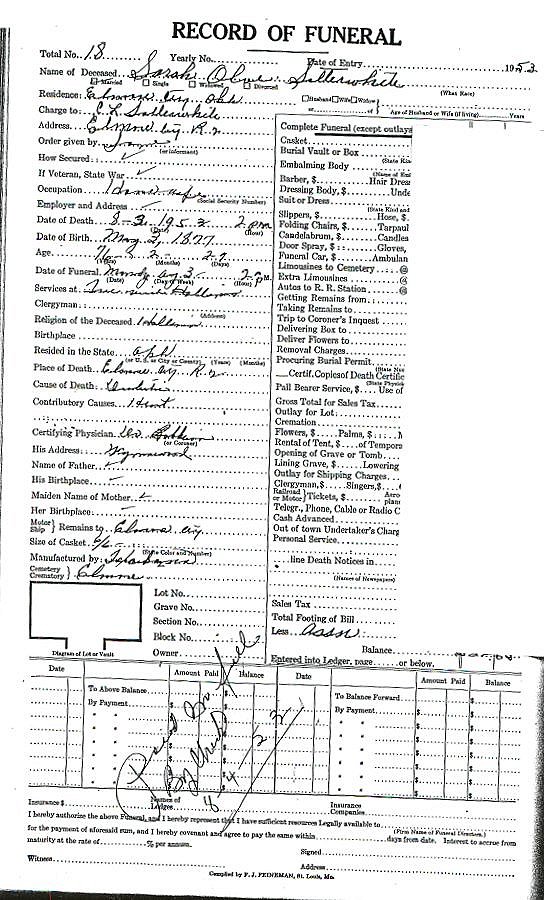 RECORD OF FUNERAL
Total No. 18 Yearly No. Date of Entry 1953
Name of Deceased Sarah Olive Satterwhite
Married Single Widowed Divorced (What Race)
Residence: Elmore City Okla Husband Wife Widow of Age of Husband or Wife (if living) Years
Charge to: C. L. Satterwhite
Address Elmore City R. 2
Order given by
(or informant)
How Secured:
If Veteran, State War
Occupation House Wife
(Social Security Number)
Employer and Address
Date of Death 8-3-195 2 PM
(Date) (Hour)
Date of Birth May 3, 1877
Age 76 2 29
(Years) (Months) (Days)
Date of Funeral Monday Aug 3 2 PM
(Date) (Day of Week) (Hour)
Services at
(Address)
Clergyman:
Religion of the Deceased
Birthplace
Resided in the State
(or U. S. or City or County) (Years) (Months)
Place of Death Elmore City R. 2
Cause of Death
Contributory Causes Heart
Certifying Physician Dr.
(or Coroner)
His Address Wynnewood
Name of Father
His Birthplace
Maiden Name of Mother
Her Birthplace
Motor Ship } Remains to Elmore City
Size of Casket
(State Color and Number)
Manufactured by
Cemetery Crematory } Elmore
Diagram of Lot or Vault
Lot No.
Grave No.
Section No.
Block No.
Owner
Complete Funeral (except outlays
Casket
Burial Vault or Box
(State Kin
Embalming Body
(Name of Em
Barber, $ Hair Dres
Dressing Body, $ Unde
Suit or Dress
(State Kind and
Slippers, $ Hose, $
Folding Chairs, $ Tarpaul
Candelabrum, $ Candles
Door Spray, $ Gloves,
Funeral Car, $ Ambulan
Limousines to Cemetery @
Extra Limousines @
Autos to R. R. Station @
Getting Remains from
Taking Remains to
Trip to Coroner's Inquest
Delivering Box to
Deliver Flowers to
Removal Charges
Procuring Burial Permit
(State Nu
Certif. Copies of Death Certifie
(State Physicia
Pall Bearer Service, $ Use of
Gross Total for Sales Tax
Outlay for Lot:
Cremation
Flowers, $ Palms, $
Rental of Tent, $ of Tempora
Opening of Grave or Tomb
Lining Grave, $ Lowering
Outlay for Shipping Charges
Clergyman, $ Singers, $
Railroad or Motor } Tickets, $ Aero plane
Telegr., Phone, Cable or Radio C
Cash Advanced
Out of town Undertaker's Charg
Personal Service
line Death Notices in
(Names of Newspapers)
Sales Tax
Total Footing of Bill
Less Assn
Balance
Entered into Ledger, page or below.
Date Amount Paid Balance Date Amount Paid Balance
To Above Balance To Balance Forward
By Payment $ By Payment $
Paid In full
By Check
Insurance $ Names of Lodges Insurance Companies
I hereby authorize the above Funeral, and I hereby represent that I have sufficient resources Legally available to
(Firm Name of Funeral Directors.)
for the payment of aforesaid sum, and I hereby covenant and agree to pay the same within days from date. Interest to accrue from
maturity at the rate of % per annum. Signed
Witness Address
Compiled by F. J. FEINEMAN, St. Louis, Mo.